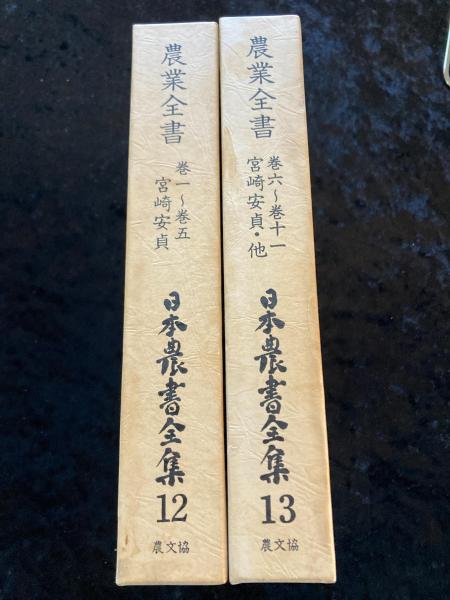 農業全書
巻一～巻五
宮崎安貞
日本農書全集
12
農文協
農業全書
巻六～巻十一
宮崎安貞・他
日本農書全集
13
農文協